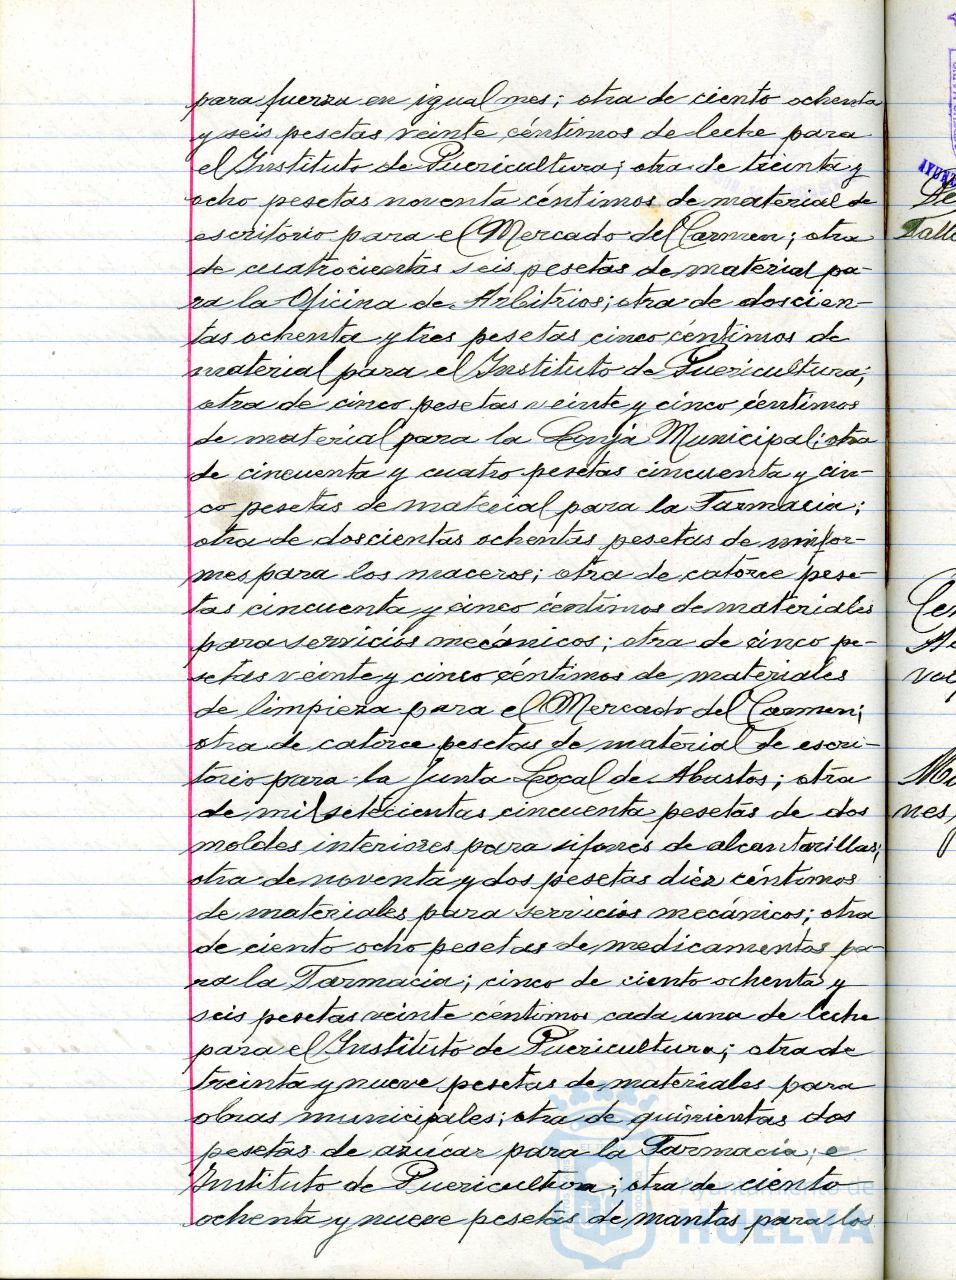 para fuerza en igual mes; otra de ciento ochenta
y seis pesetas veinte céntimos de leche para
el Instituto de Puericultura; otra de treinta y
ocho pesetas noventa céntimos de material de
escritorio para el Mercado del Carmen; otra
de cuatrocientas seis pesetas de material pa-
ra la Oficina de Arbitrios; otra de doscien-
tas ochenta y tres pesetas cinco céntimos de
material para el Instituto de Puericultura;
otra de cinco pesetas veinte y cinco céntimos
de material para la Lonja Municipal; otra
de cincuenta y cuatro pesetas cincuenta y cin-
co pesetas de material para la Farmacia;
otra de doscientas ochentas pesetas de unifor-
mes para los maceros; otra de catorce pese-
tas cincuenta y cinco céntimos de materiales
para servicios mecánicos; otra de cinco pe-
setas veinte y cinco céntimos de materiales
de limpieza para el Mercado del Carmen;
otra de catorce pesetas de material de escri-
torio para la Junta Local de Abastos; otra
de mil setecientas cincuenta pesetas de dos
moldes interiores para sifones de alcantarillas;
otra de noventa y dos pesetas diez céntimos
de materiales para servicios mecánicos; otra
de ciento ocho pesetas de medicamentos pa-
ra la Farmacia; cinco de ciento ochenta y
seis pesetas veinte céntimos cada una de leche
para el Instituto de Puericultura; otra de
treinta y nueve pesetas de materiales para
obras municipales; otra de quinientas dos
pesetas de azúcar para la Farmacia, e
Instituto de Puericultura; otra de ciento
ochenta y nueve pesetas de mantas para los
Ayuntamiento de
HUELVA